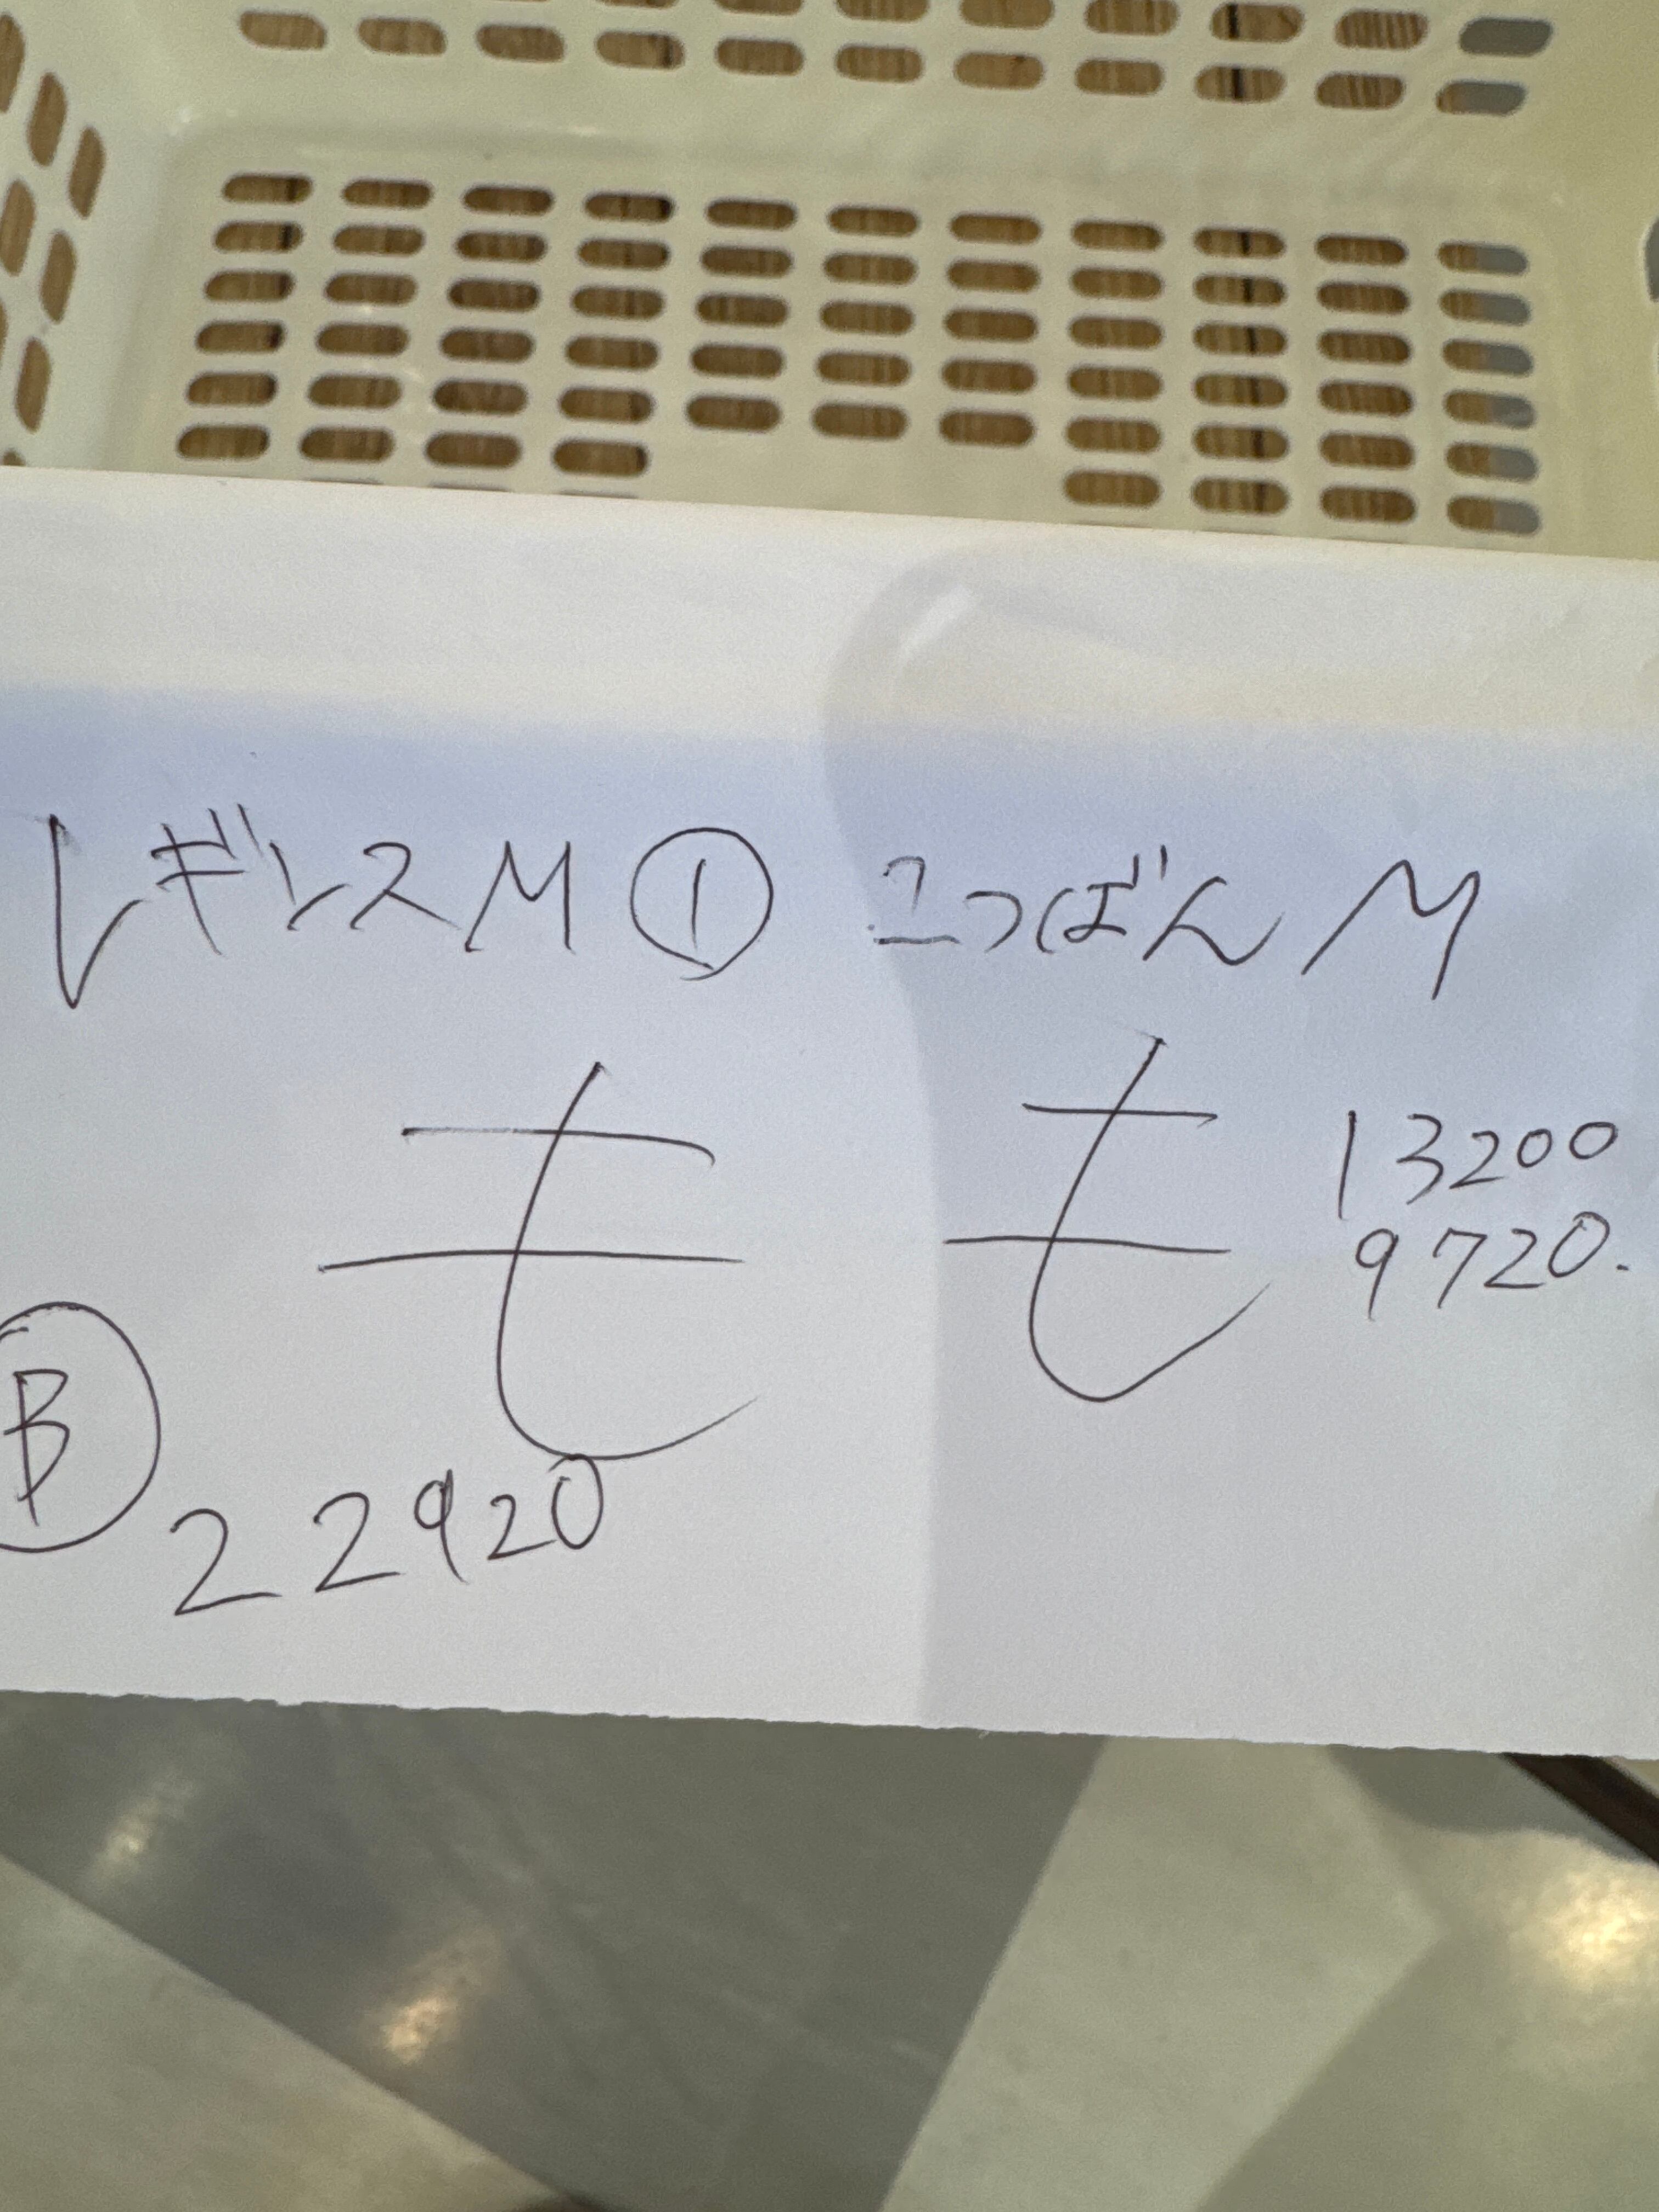 レギンスM① こつばんM
も も 13200
9720.
Ⓑ 22920